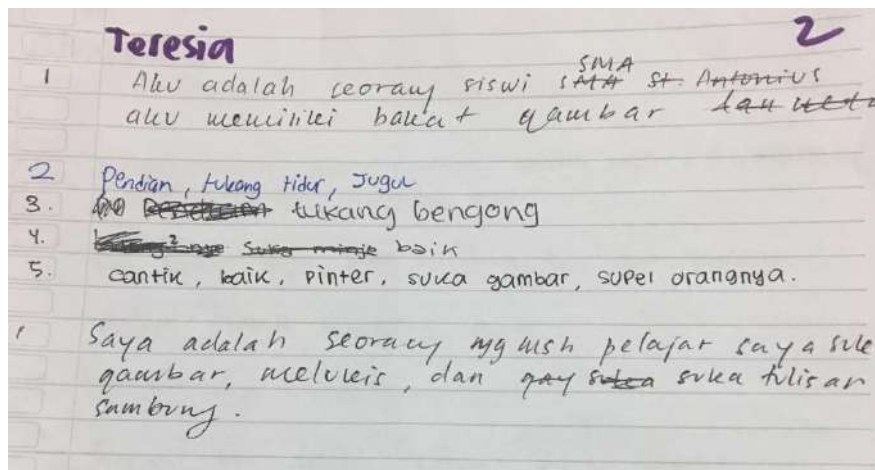 Teresia 2
1 Aku adalah seorang siswi SMA SMA St. Antonius
aku memiliki bakat gambar dan
2 Pendian, tukang tidur, Jugul
3. tukang bengong
4. Suka minje baik
5. cantik, baik, pinter, suka gambar, supel orangnya.
1 Saya adalah seorang yg msh pelajar saya suk
gambar, melukis, dan suka suka tulisan
sambung.